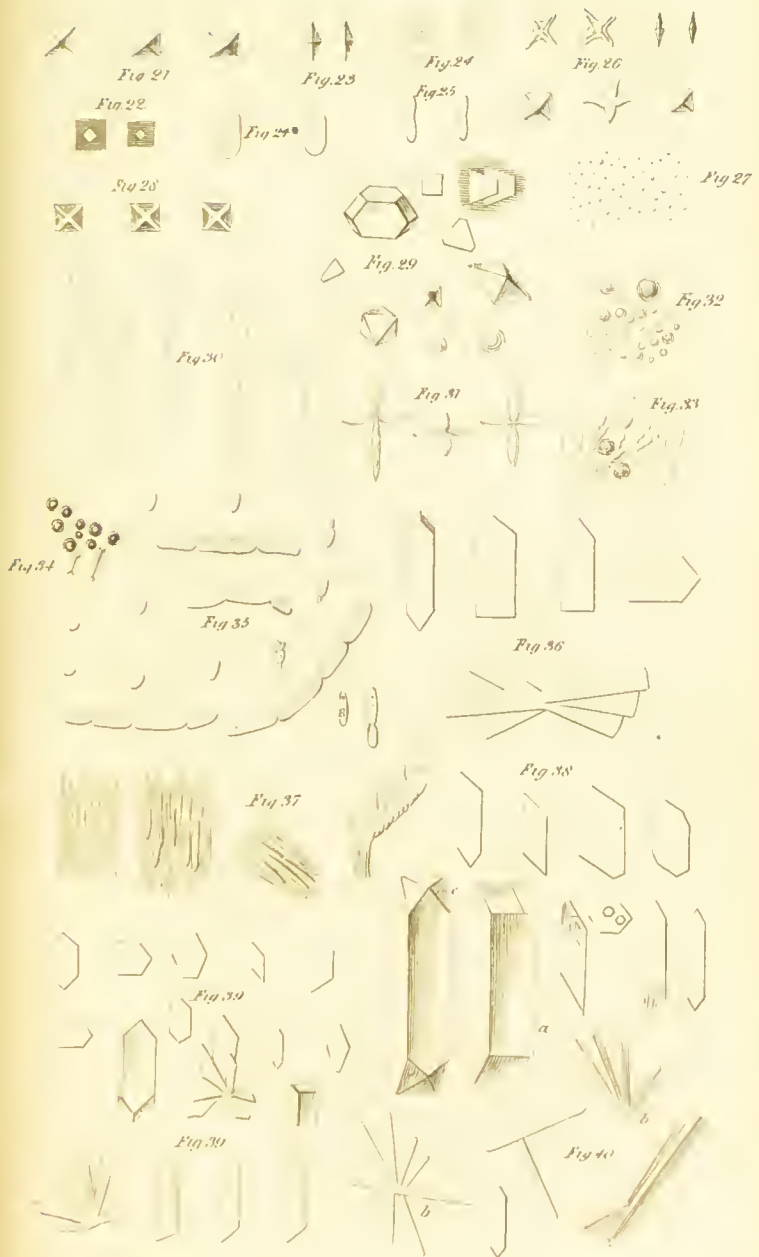 Fig 21
Fig. 23
Fig. 24
Fig. 26
Fig. 22
Fig. 25
Fig 24
Fig 27
Fig 28
Fig. 29
Fig 32
Fig 30
Fig. 31
Fig. 33
Fig 34
Fig 35
Fig 36
Fig 37
Fig 38
c
Fig 39
a
b
Fig 39
Fig 40
b